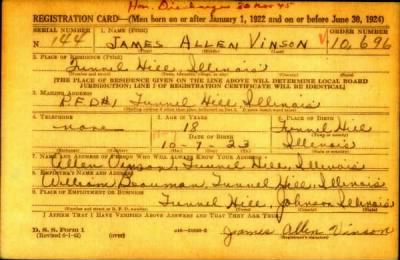 Hon. Discharge 30 Nov 45
REGISTRATION CARD—(Men born on or after January 1, 1922 and on or before June 30, 1924)
SERIAL NUMBER 1. NAME (Print) ORDER NUMBER
N 144 JAMES ALLEN VINSON 10,696
2. PLACE OF RESIDENCE (Print)
Tunnel Hill, Illinois
[THE PLACE OF RESIDENCE GIVEN ON THE LINE ABOVE WILL DETERMINE LOCAL BOARD
JURISDICTION; LINE 1 OF REGISTRATION CERTIFICATE WILL BE IDENTICAL]
3. MAILING ADDRESS
R.F.D #1 Tunnel Hill Illinois
4. TELEPHONE 5. AGE IN YEARS 6. PLACE OF BIRTH
none 18 Tunnel Hill
DATE OF BIRTH
10-7-23 Illinois
7. NAME AND ADDRESS OF PERSON WHO WILL ALWAYS KNOW YOUR ADDRESS
Allen Vinson, Tunnel Hill, Illinois
8. EMPLOYER'S NAME AND ADDRESS
William Beauman, Tunnel Hill, Illinois
9. PLACE OF EMPLOYMENT OR BUSINESS
Tunnel Hill, Johnson Illinois
I AFFIRM THAT I HAVE VERIFIED ABOVE ANSWERS AND THAT THEY ARE TRUE.
D. S. S. Form 1
(Revised 6-1-42) (over)
James Allen Vinson